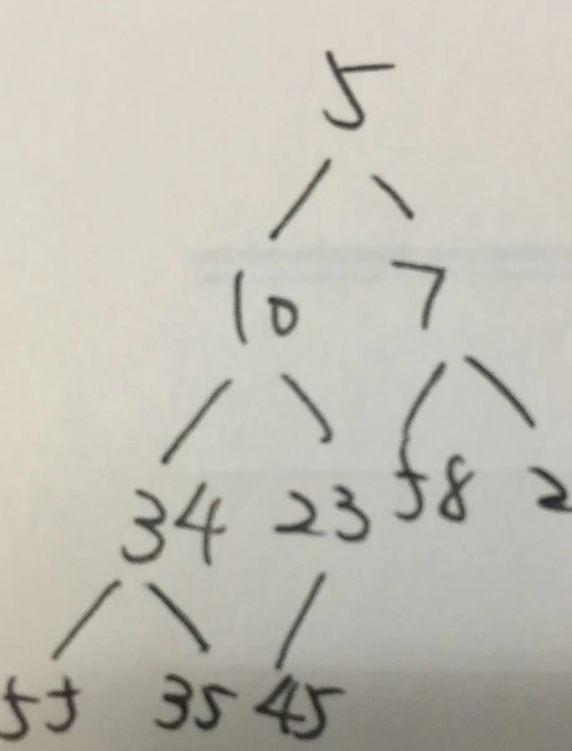 5
10 7
34 23 58 2
55 35 45